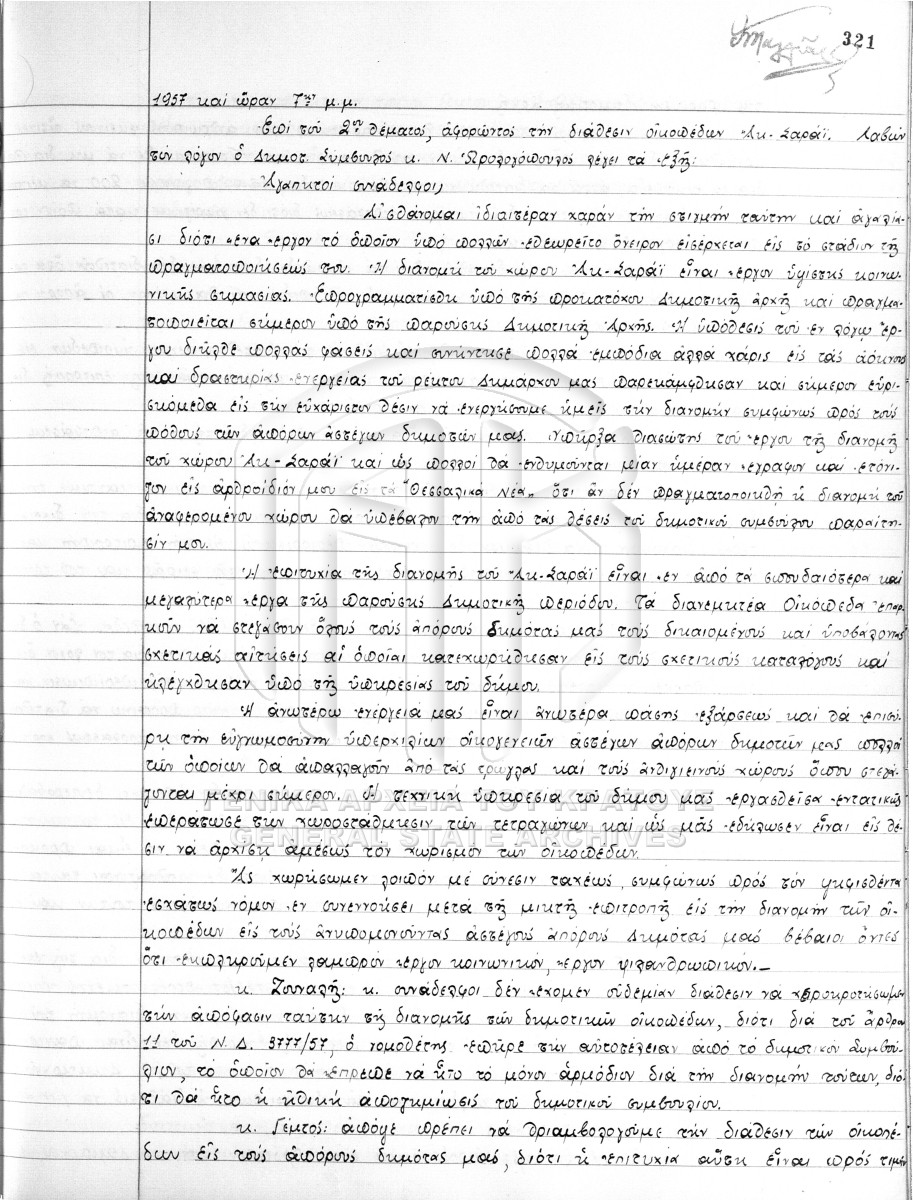 321
1957 καὶ ὥραν 7ην μ.μ.
Ἐπὶ τοῦ 2ου θέματος, ἀφορῶντος τὴν διάθεσιν οἰκοπέδων Ἀκ-Σαράϊ. Λαβὼν
τὸν λόγον ὁ Δημοτ. Σύμβουλος κ. Ν. λέγει τὰ ἑξῆς:
Ἀγαπητοὶ συνάδελφοι,
Αἰσθάνομαι ἰδιαιτέραν χαρὰν τὴν στιγμὴν ταύτην καὶ ἀγαλλία-
σι διότι ἕνα ἔργον τὸ ὁποῖον ὑπὸ πολλῶν ἐθεωρεῖτο ὄνειρον εἰσέρχεται εἰς τὸ στάδιον τῆς
πραγματοποιήσεώς του. Ἡ διανομὴ τοῦ χώρου Ἀκ-Σαράϊ εἶναι ἔργον ὑψίστης κοινω-
νικῆς σημασίας. Ἐπρογραμματίσθη ὑπὸ τῆς προκατόχου Δημοτικῆς ἀρχῆς καὶ πραγμα-
τοποιεῖται σήμερον ὑπὸ τῆς παρούσης Δημοτικῆς Ἀρχῆς. Ἡ ὑπόθεσις τοῦ ἐν λόγῳ ἔρ-
γου διῆλθε πολλὰς φάσεις καὶ συνήντησε πολλὰ ἐμπόδια ἀλλὰ χάρις εἰς τὰς ἀόκνους
καὶ δραστηρίας ἐνεργείας τοῦ ρέκτου Δημάρχου μας παρεκάμφθησαν καὶ σήμερον εὑρι-
σκόμεθα εἰς τὴν εὐχάριστον θέσιν νὰ ἐνεργήσουμε ἡμεῖς τὴν διανομὴν συμφώνως πρὸς τοὺς
πόθους τῶν ἀπόρων ἀστέγων δημοτῶν μας. Ὑπῆρξα θιασώτης τοῦ ἔργου τῆς διανομῆς
τοῦ χώρου Ἀκ-Σαράϊ καὶ ὡς πολλοὶ θὰ ἐνθυμοῦνται μίαν ἡμέραν ἔγραφον καὶ ἐτόνι-
ζον εἰς ἀρθρίδιόν μου εἰς τὰ "Θεσσαλικὰ Νέα" ὅτι ἂν δὲν πραγματοποιηθῇ ἡ διανομὴ τοῦ
ἀναφερομένου χώρου θὰ ὑπέβαλον τὴν ἀπὸ τὰς θέσεις τοῦ δημοτικοῦ συμβούλου παραίτη-
σίν μου.
Ἡ ἐπιτυχία τῆς διανομῆς τοῦ Ἀκ-Σαράϊ εἶναι ἓν ἀπὸ τὰ σπουδαιότερα καὶ
μεγαλύτερα ἔργα τῆς παρούσης Δημοτικῆς περιόδου. Τὰ διανεμητέα Οἰκόπεδα ἐπαρ-
κοῦν νὰ στεγάσουν ὅλους τοὺς ἀπόρους δημότας μας τοὺς δικαιομένους καὶ ὑποβάλοντας
σχετικὰς αἰτήσεις αἱ ὁποῖαι κατεχωρήθησαν εἰς τοὺς σχετικοὺς καταλόγους καὶ
ἠλέγχθησαν ὑπὸ τῆς ὑπηρεσίας τοῦ δήμου.
Ἡ ἀνωτέρω ἐνέργειά μας εἶναι ἀνωτέρα πάσης ἐξάρσεως καὶ θὰ ἐπισύ-
ρῃ τὴν εὐγνωμοσύνην ὑπερχιλίων οἰκογενειῶν ἀστέγων ἀπόρων δημοτῶν μας πολλὰ
τῶν ὁποίων θὰ ἀπαλλαγοῦν ἀπὸ τὰς τρώγλας καὶ τοὺς ἀνθιγιεινοὺς χώρους ὅπου στεγά-
ζονται μέχρι σήμερον. Ἡ τεχνικὴ ὑπηρεσία τοῦ δήμου μας ἐργασθεῖσα ἐντατικῶς
ἐπεράτωσε τὴν χωροστάθμησιν τῶν τετραγώνων καὶ ὡς μᾶς ἐδήλωσεν εἶναι εἰς θέ-
σιν νὰ ἀρχίσῃ ἀμέσως τὸν χωρισμὸν τῶν οἰκοπέδων.
Ἂς χωρήσωμεν λοιπὸν μὲ σύνεσιν ταχέως, συμφώνως πρὸς τὸν ψηφισθέντα
ἐσχάτως νόμον ἐν συνεννοήσει μετὰ τῆς μικτῆς ἐπιτροπῆς εἰς τὴν διανομὴν τῶν οἰ-
κοπέδων εἰς τοὺς ἀνυπομονοῦντας ἀστέγους ἀπόρους Δημότας μας βέβαιοι ὄντες
ὅτι ἐκπληροῦμεν λαμπρὸν ἔργον κοινωνικόν, ἔργον φιλανθρωπικόν.—
κ. Ζουναλῆ: κ. συνάδελφοι δὲν ἔχομεν οὐδεμίαν διάθεσιν νὰ χειροκροτήσωμεν
τὴν ἀπόφασιν ταύτην τῆς διανομῆς τῶν δημοτικῶν οἰκοπέδων, διότι διὰ τοῦ ἄρθρου
11 τοῦ Ν.Δ. 3777/57, ὁ νομοθέτης ἐπῆρε τὴν αὐτοτέλειαν ἀπὸ τὸ δημοτικὸν Συμβού-
λιον, τὸ ὁποῖον θὰ ἔπρεπε νὰ ἦτο τὸ μόνον ἁρμόδιον διὰ τὴν διανομὴν τούτων, διό-
τι θὰ ἦτο ἡ ἠθικὴ ἀποζημίωσις τοῦ δημοτικοῦ συμβουλίου.
κ. Γέμτος: ἀπόψε πρέπει νὰ θριαμβολογοῦμε τὴν διάθεσιν τῶν οἰκοπέ-
δων εἰς τοὺς ἀπόρους δημότας μας, διότι ἡ ἐπιτυχία αὕτη εἶναι πρὸς τιμὴν
ΓΕΝΙΚΑ ΑΡΧΕΙΑ ΤΟΥ ΚΡΑΤΟΥΣ
GENERAL STATE ARCHIVES